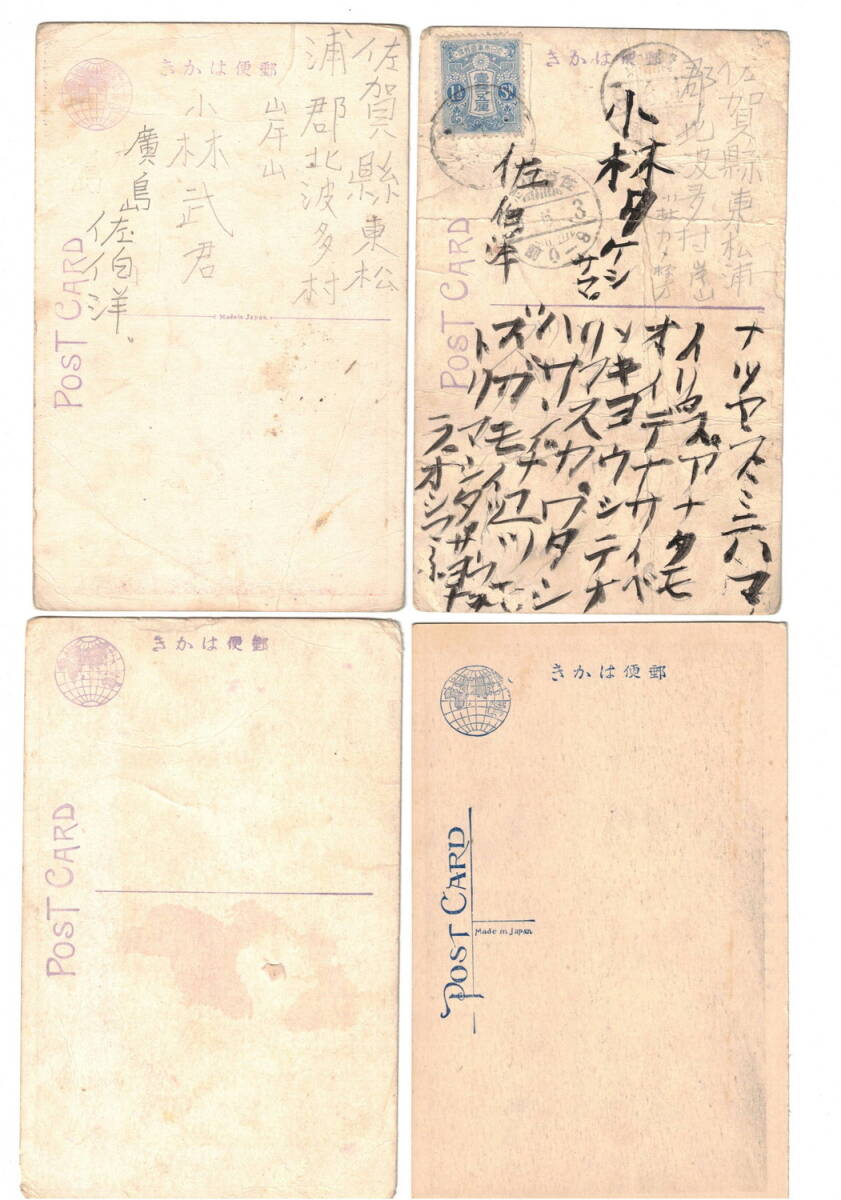 きかは便郵
佐賀縣東松
浦郡北波多村
岸山
小林武君
廣島
佐白洋
POST CARD
Made in Japan
きかは便郵
佐賀縣東松浦
郡北波多村岸山
小林タケシ
サマ
佐伯洋
1½ Sn
POST CARD
ナツヤスミニハマ
イリマスアナタモ
オイデナサイベ
ンキョウシテオ
リマスカワタシ
ハサ
ズガモイツ
トリマシタサヨウナ
ラオシマイ
きかは便郵
POST CARD
きかは便郵
POST CARD
Made in Japan